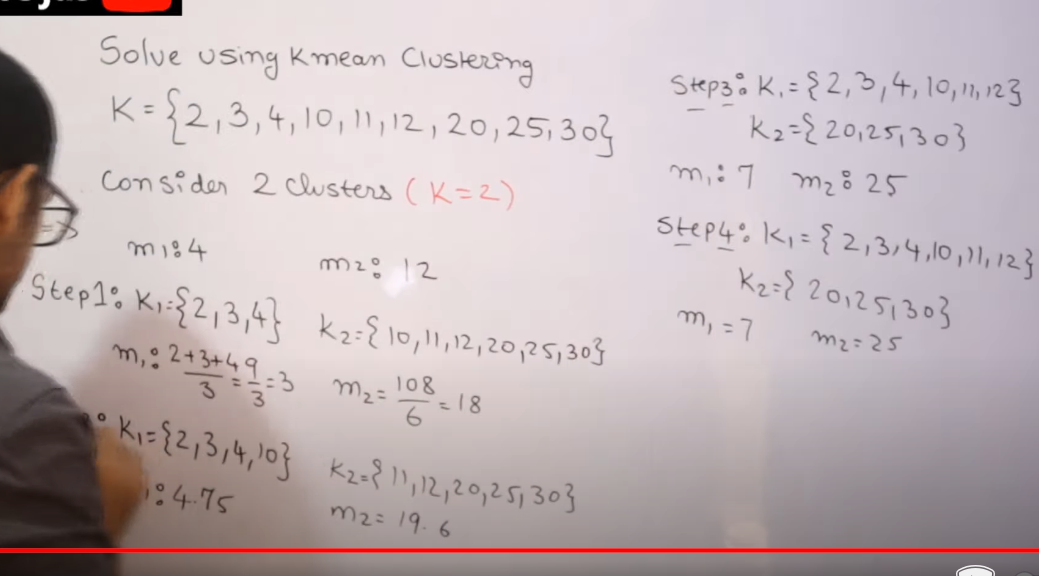 Solve using Kmean Clustering
K = {2, 3, 4, 10, 11, 12, 20, 25, 30}
Consider 2 clusters (K=2)
m1: 4 m2: 12
Step1: K1={2,3,4} K2={10,11,12,20,25,30}
m1: 2+3+4/3 = 9/3 = 3 m2= 108/6 = 18
K1={2,3,4,10} K2={11,12,20,25,30}
: 4.75 m2= 19.6
Step3: K1={2,3,4,10,11,12}
K2={20,25,30}
m1: 7 m2: 25
Step4: K1={2,3,4,10,11,12}
K2={20,25,30}
m1=7 m2=25